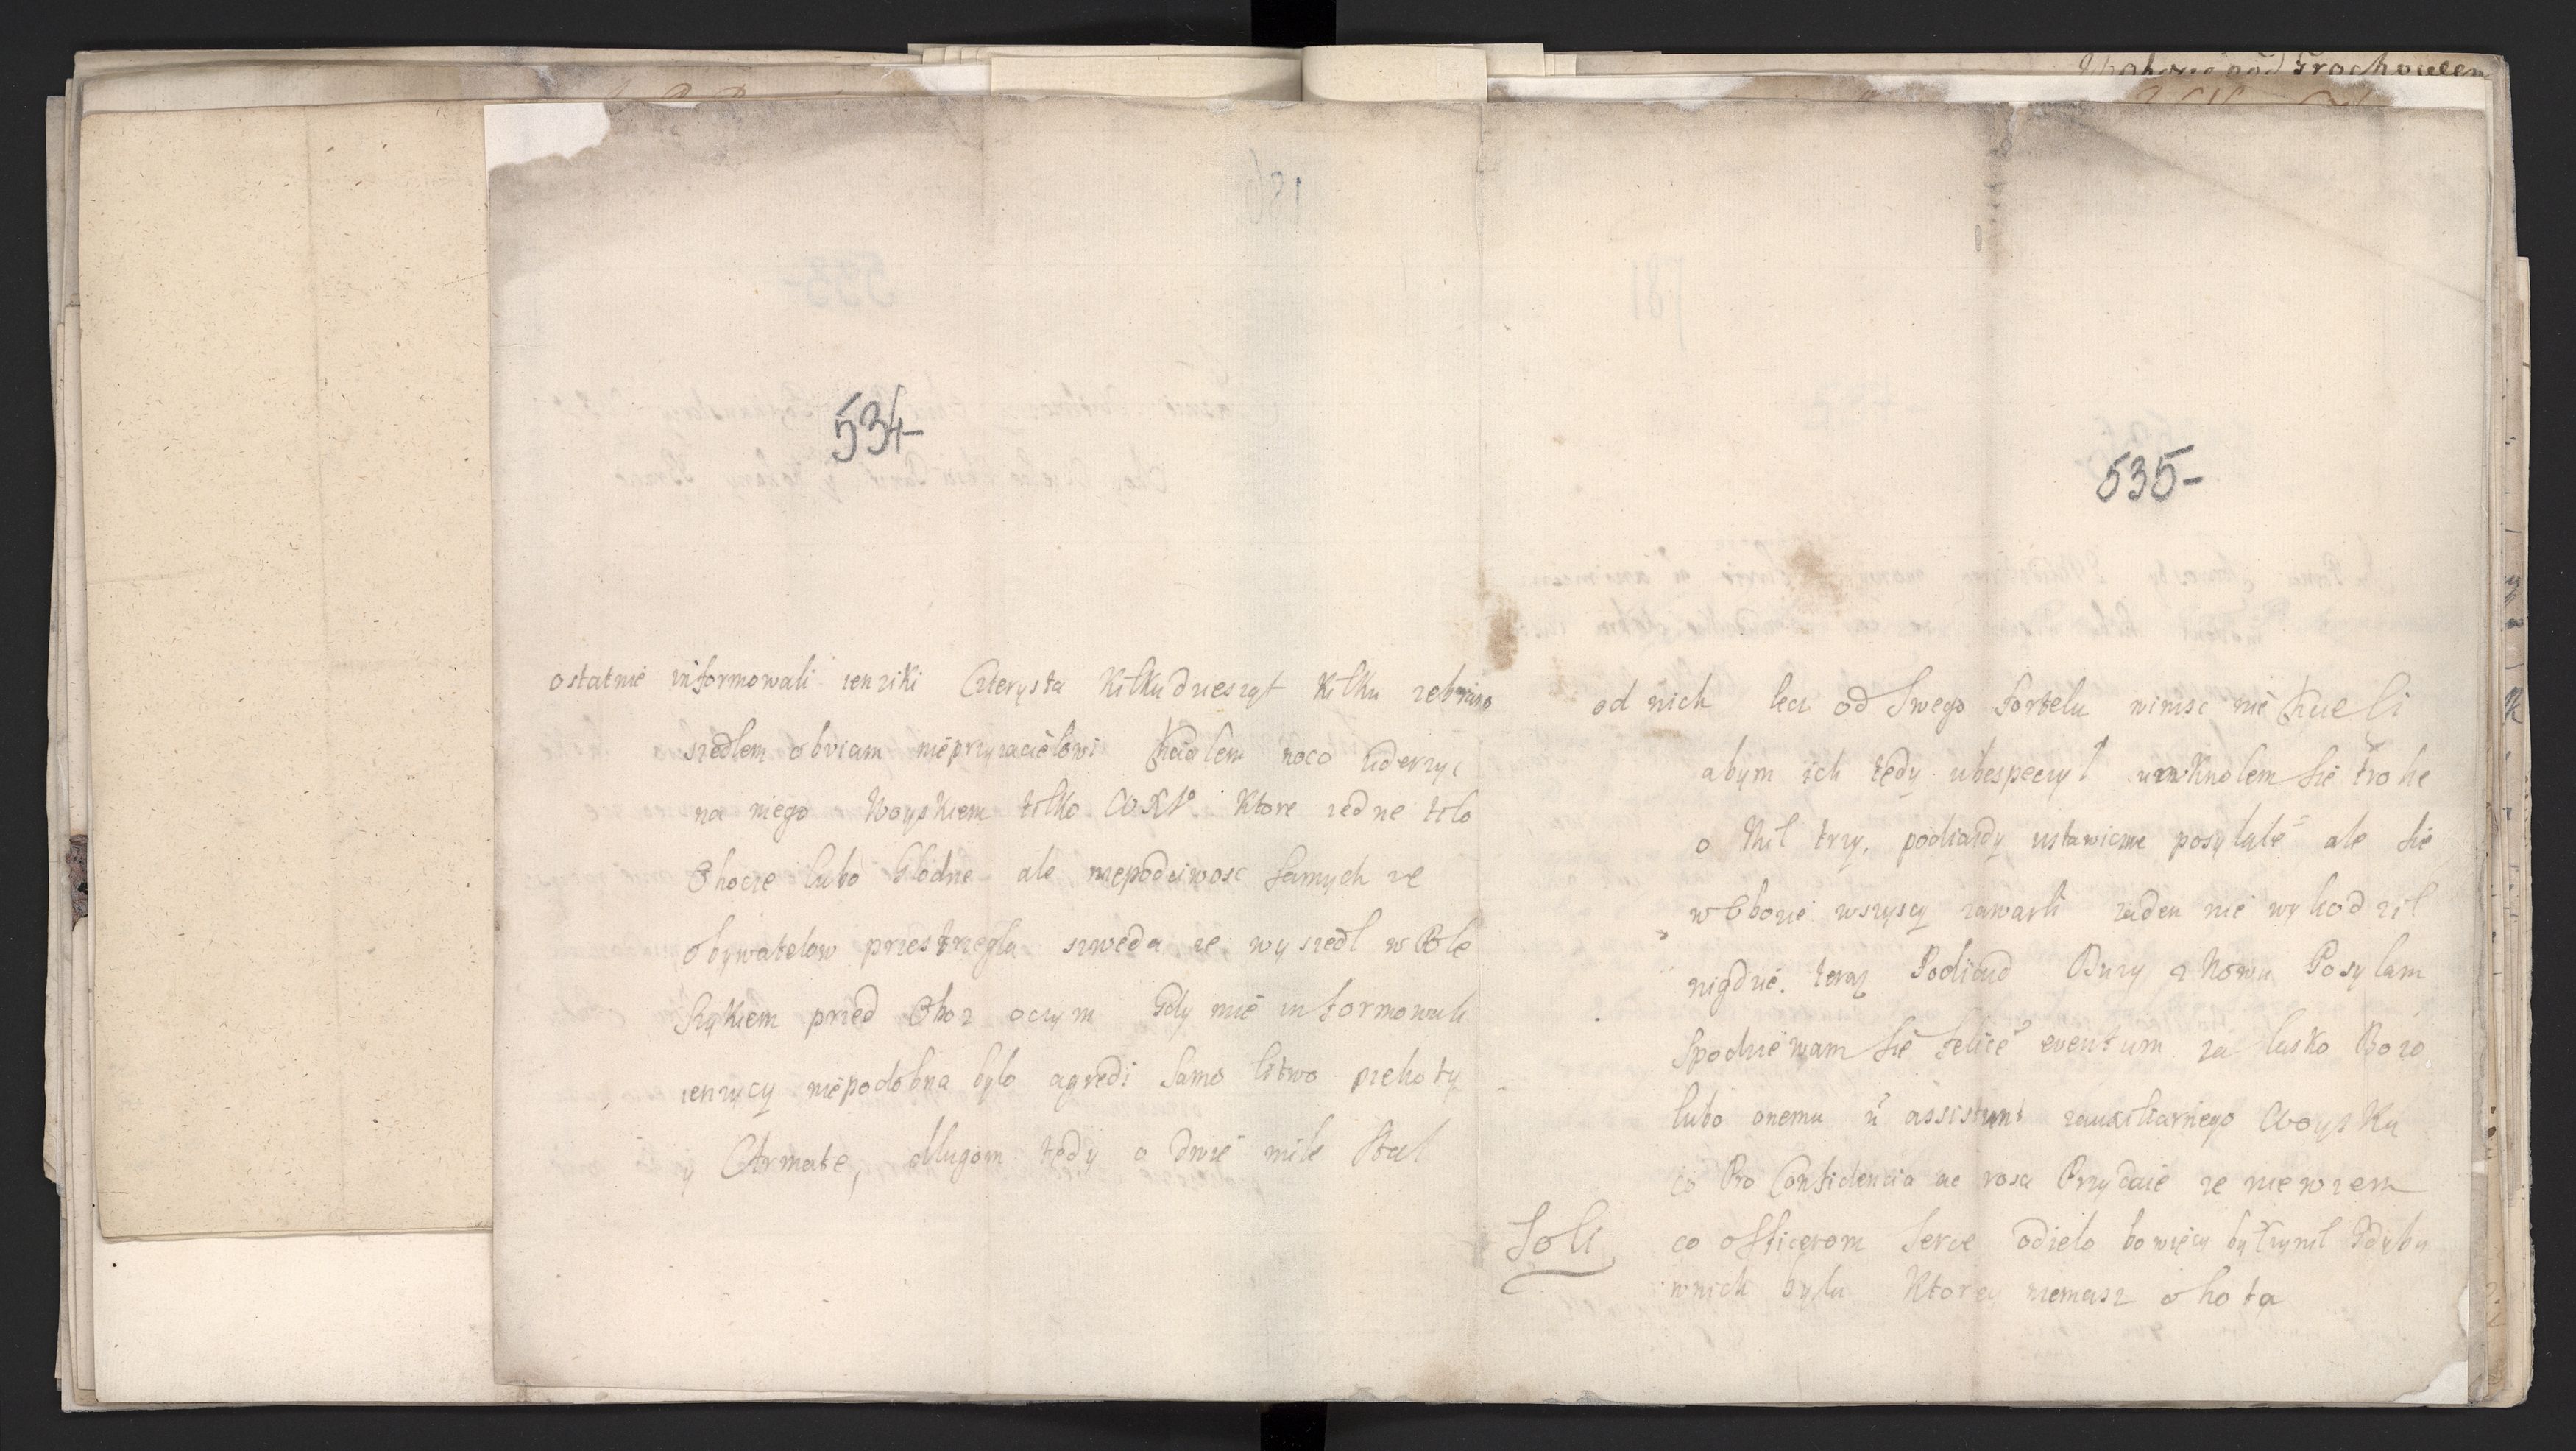 534-
ostatnie informowali ienziki Czterysta Kilkudzieszqt Kilku
siedlem obviam nieprzyiacielowi Chcialem noco uderzyc
na niego Woyskiem tilko WXLo Ktore iedne tilo
Ohocze lubo Glodne ale niepodciwosc samych ze
obywatelow przestrzegla szweda ze wysiedl w Pole
Szykiem przed Oboz oczym Gdy mie informowali
ienzycy niepodobna bylo agredi samo litwo piehoty
y Armate, dlugom tedy o dwie mile stal
535-
od nich lecz od Swego Fortelu winisc nie Chcieli
abym ich tedy ubespeczyl umknolem sie trohe
o Mil trzy, podiazdy ustawiczne posylalē ale sie
w Obozie wszyscy zawarli zaden nie wyhodzil
nigdzie. teraz Podiazd Duzy z Nowu Posylam
Spodziewam sie felicē eventum za lasko Bozo
lubo onemu assistunt zauxiliarnego Woyska
co Pro Confidencia ac rosa Przydaie ze niewiem
Soli co officerom Serce odielo bo wiecy by Czynil Gdyby
wnich byla Ktorey niemasz ohota